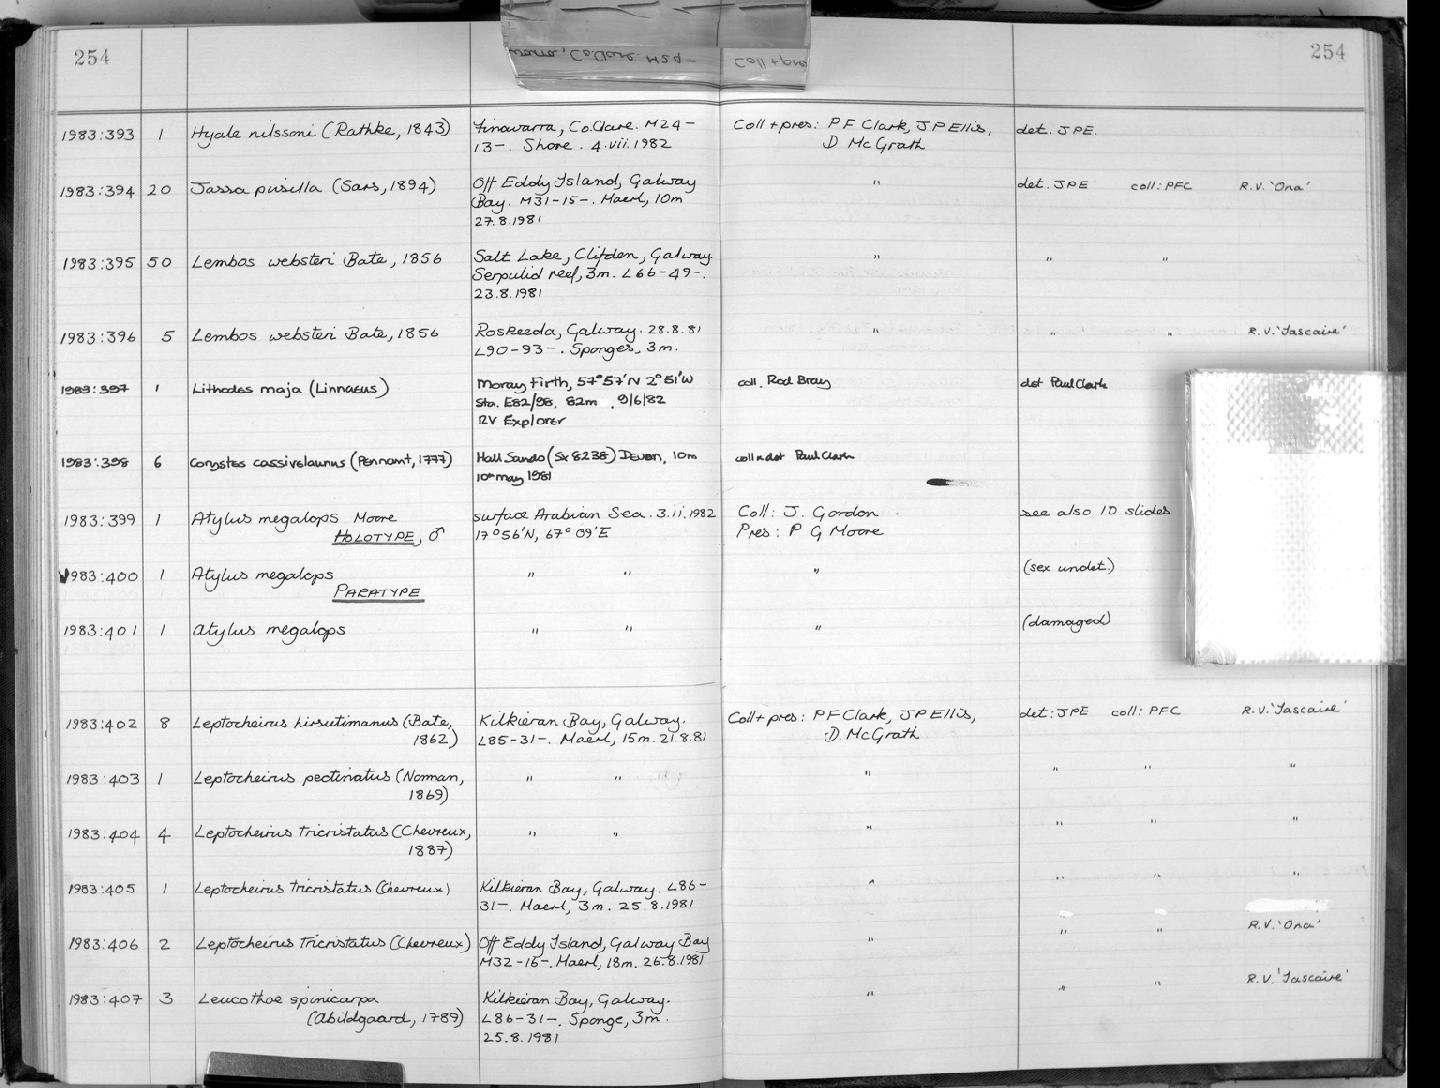 254
254
1983:393 1 Hyale nilssoni (Rathke, 1843) Finavarra, Co.Clare. M24-
13-. Shore. 4.vii.1982
Coll + pres: P F Clark, J P Ellis,
D McGrath
det. JPE.
1983:394 20 Jassa pusilla (Sars, 1894) Off Eddy Island, Galway
Bay. M31-15-. Maerl, 10m
27.8.1981
" det. JPE coll: PFC R.V. 'Ona'
1983:395 50 Lembos websteri Bate, 1856 Salt Lake, Clifden, Galway
Serpulid reef, 3m. L66-49-.
23.8.1981
" " "
1983:396 5 Lembos websteri Bate, 1856 Roskeeda, Galway. 28.8.81
L90-93-. Sponges, 3m.
" " " R.V. 'Tascaire'
1983:397 1 Lithodes maja (Linnaeus) Moray Firth, 57°57'N 2°51'W
Sta. E82/98, 82m. 9/6/82
RV Explorer
coll. Rod Bray det Paul Clark
1983:398 6 Corystes cassivelaunus (Pennant, 1777) Hall Sands (Sx 8238) Devon, 10m
10th May 1981
coll & det Paul Clark
1983:399 1 Atylus megalops Moore
HOLOTYPE, ♂
surface Arabian Sea. 3.ii.1982
17°56'N, 67°09'E
Coll: J. Gordon
Pres: P G Moore
see also 10 slides
1983:400 1 Atylus megalops
PARATYPE
" " " (sex undet.)
1983:401 1 Atylus megalops " " " (damaged)
1983:402 8 Leptocheirus hirsutimanus (Bate,
1862)
Kilkieran Bay, Galway.
L85-31-. Maerl, 15m. 21.8.81
Coll + pres: P F Clark, J P Ellis,
D McGrath
det: JPE coll: PFC R.V. 'Tascaire'
1983:403 1 Leptocheirus pectinatus (Norman,
1869)
" " " " " "
1983:404 4 Leptocheirus tricristatus (Chevreux,
1887)
" " " " " "
1983:405 1 Leptocheirus tricristatus (Chevreux) Kilkieran Bay, Galway. L86-
31-. Maerl, 3m. 25.8.1981
" " " "
1983:406 2 Leptocheirus tricristatus (Chevreux) Off Eddy Island, Galway Bay
M32-16-. Maerl, 18m. 26.8.1981
" " " R.V. 'Ona'
1983:407 3 Leucothoe spinicarpa
(Abildgaard, 1789)
Kilkieran Bay, Galway.
L86-31-. Sponge, 3m.
25.8.1981
" " " R.V. 'Tascaire'